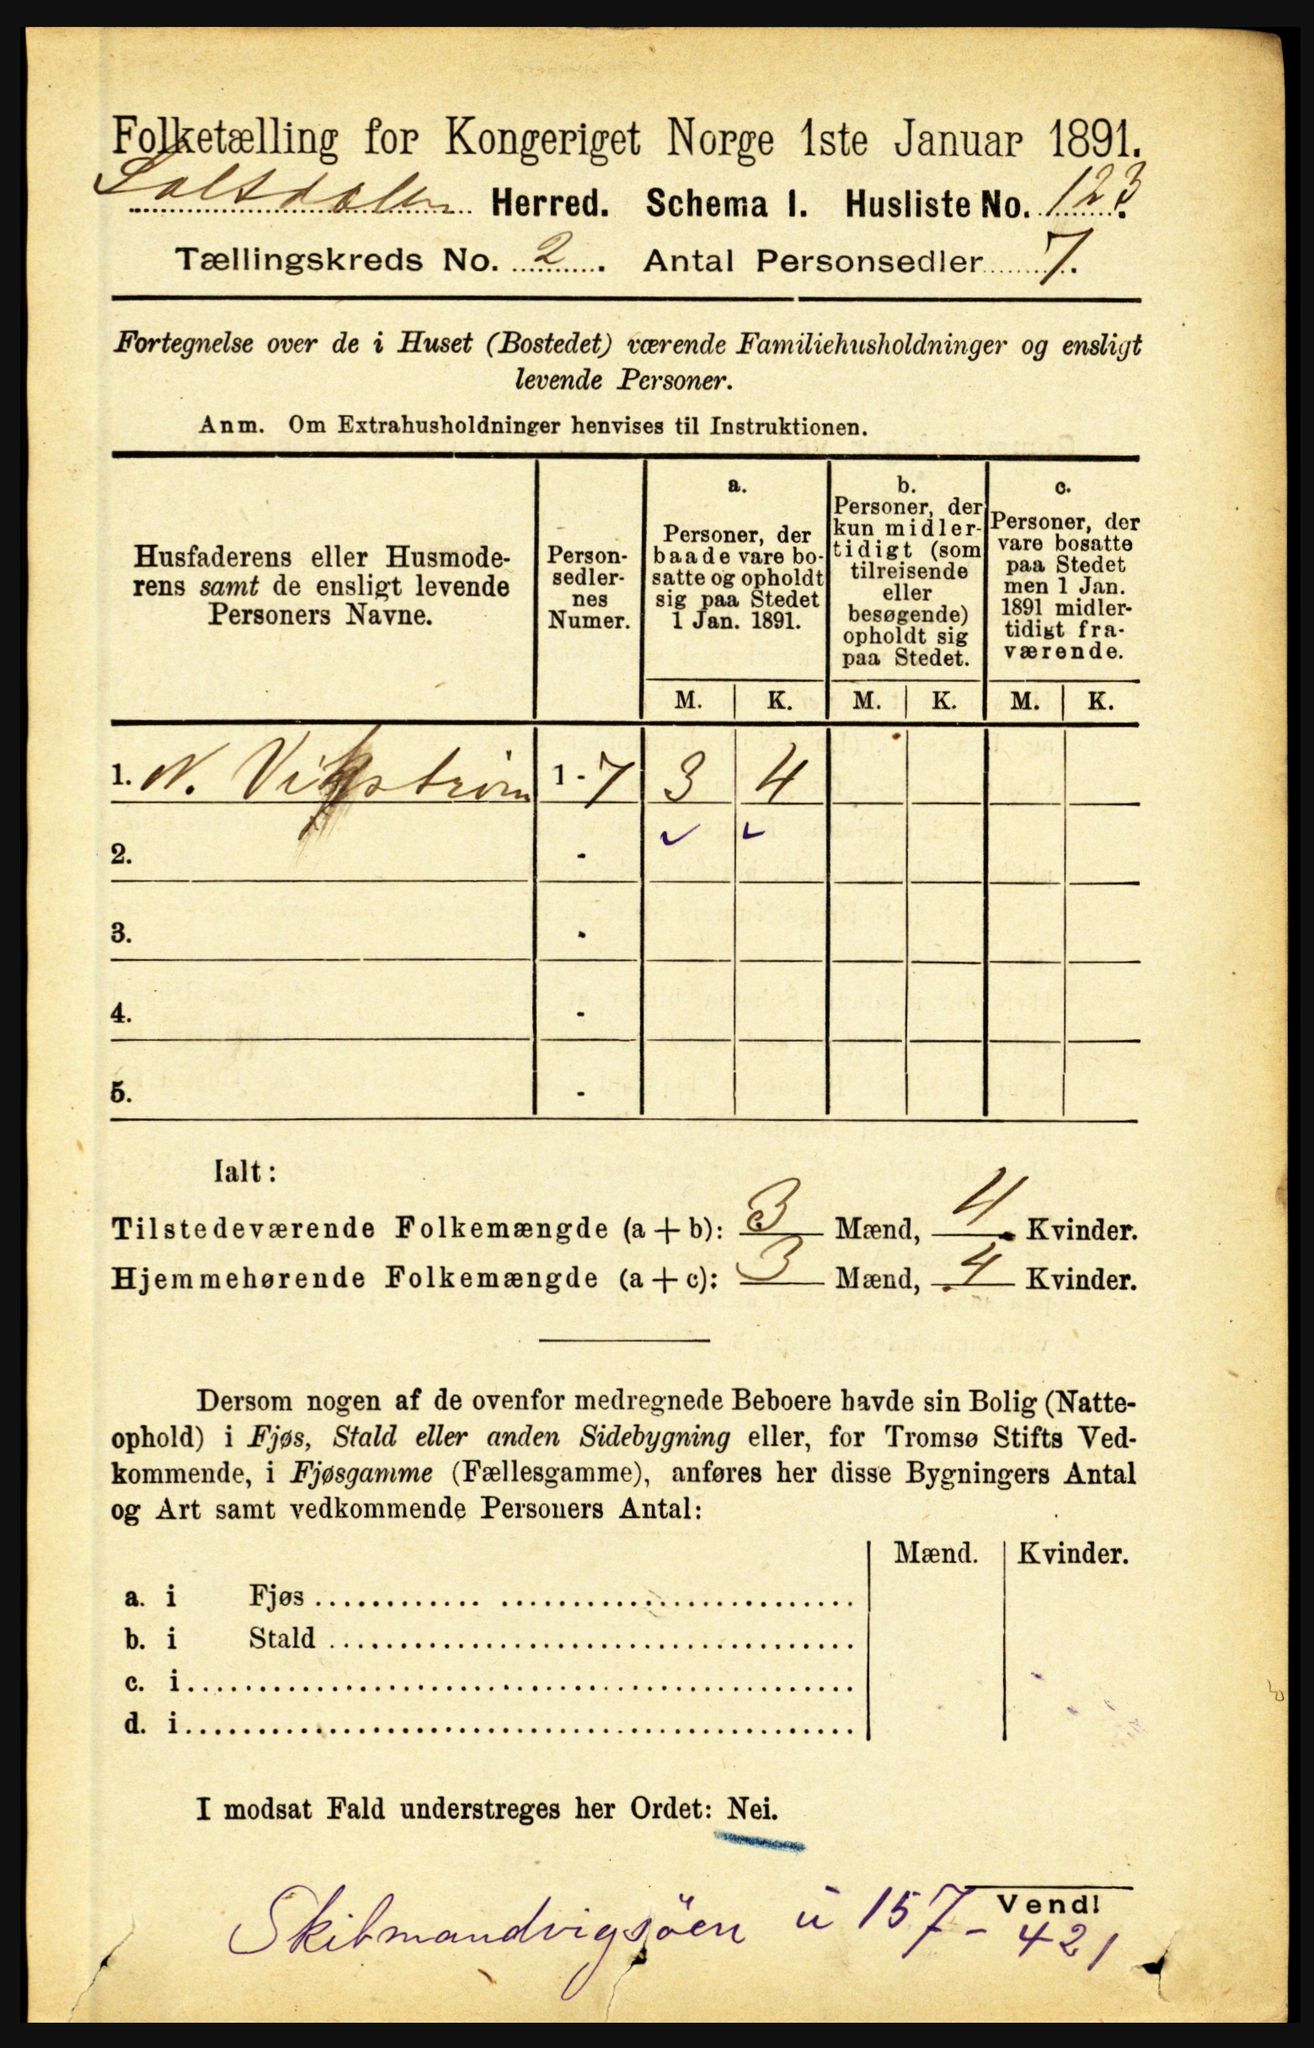 Folketælling for Kongeriget Norge 1ste Januar 1891.
Saltdalen Herred. Schema I. Husliste No. 123.
Tællingskreds No. 2. Antal Personsedler 7.
Fortegnelse over de i Huset (Bostedet) værende Familiehusholdninger og ensligt
levende Personer.
Anm. Om Extrahusholdninger henvises til Instruktionen.
Husfaderens eller Husmode-
rens samt de ensligt levende
Personers Navne.
Person-
sedler-
nes
Numer.
a.
Personer, der
baade vare bo-
satte og opholdt
sig paa Stedet
1 Jan. 1891.
b.
Personer, der
kun midler-
tidigt (som
tilreisende
eller
besøgende)
opholdt sig
paa Stedet.
c.
Personer, der
vare bosatte
paa Stedet
men 1 Jan.
1891 midler-
tidigt fra-
værende.
M. K. M. K. M. K.
1. N. Vikstrøm 1 - 7 3 4
2. -
3. -
4. -
5. -
Ialt:
Tilstedeværende Folkemængde (a + b): 3 Mænd, 4 Kvinder.
Hjemmehørende Folkemængde (a + c): 3 Mænd, 4 Kvinder.
Dersom nogen af de ovenfor medregnede Beboere havde sin Bolig (Natte-
ophold) i Fjøs, Stald eller anden Sidebygning eller, for Tromsø Stifts Ved-
kommende, i Fjøsgamme (Fællesgamme), anføres her disse Bygningers Antal
og Art samt vedkommende Personers Antal:
Mænd. Kvinder.
a. i Fjøs
b. i Stald
c. i
d. i
I modsat Fald understreges her Ordet: Nei.
Vend!
u 157 - 421